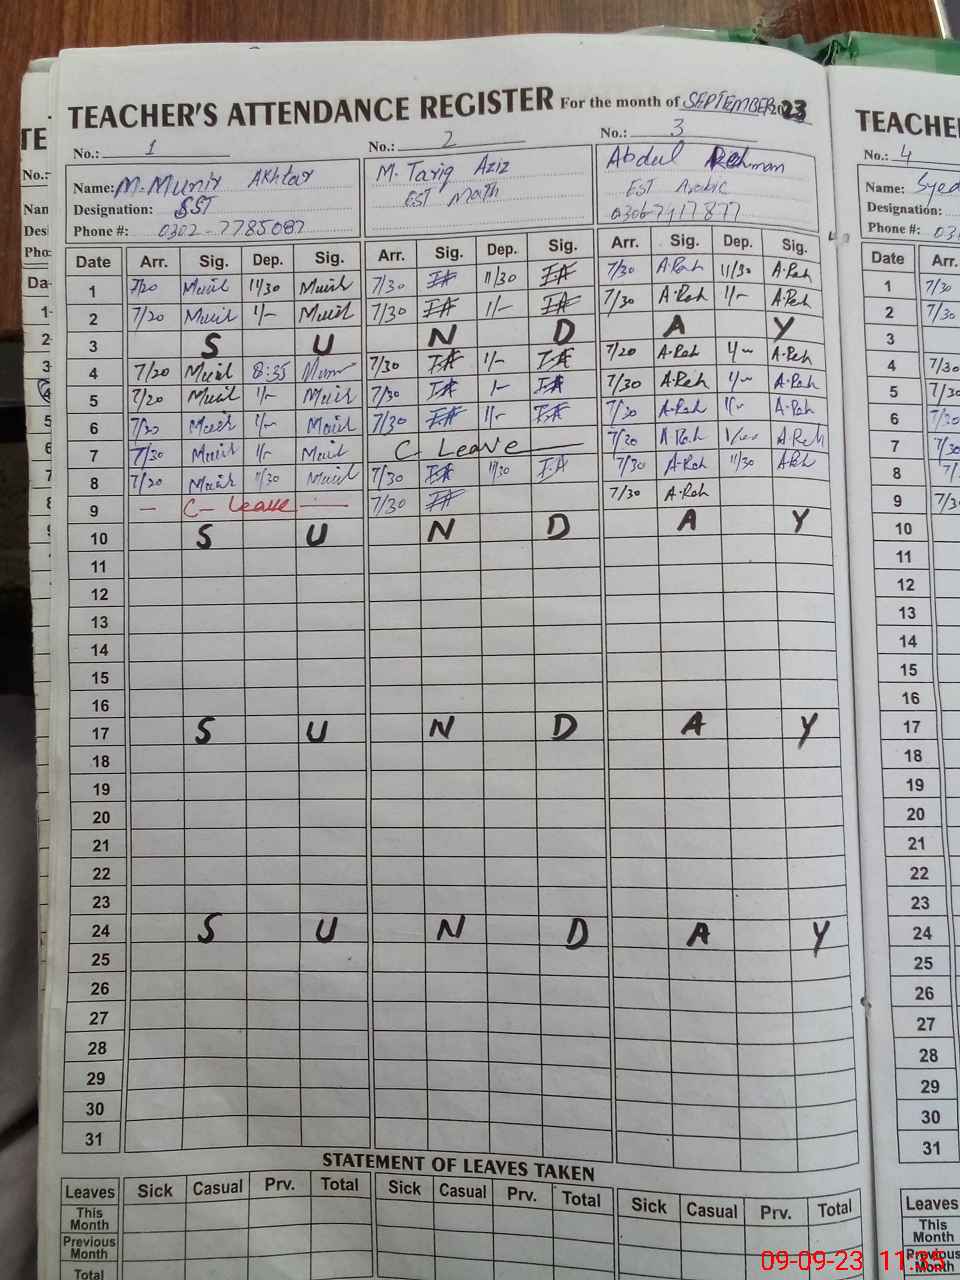 TEACHER'S ATTENDANCE REGISTER For the month of SEPTEMBER 2023
No.: 1 No.: 2 No.: 3
Name: M. Munir Akhtar M. Tariq Aziz Abdul Rehman
Designation: SST EST Math EST Arabic
Phone #: 0302-7785087 0306-7917877
Date Arr. Sig. Dep. Sig. Arr. Sig. Dep. Sig. Arr. Sig. Dep. Sig.
1 7/20 Munir 11/30 Munir 7/30 11/30 7/30 A.Reh 11/30 A.Reh
2 7/20 Munir 1/- Munir 7/30 1/- 7/30 A.Reh 1/- A.Reh
3 S U N D A Y
4 7/20 Munir 8:35 7/30 1/- 7/20 A.Reh A.Reh
5 7/20 Munir 1/- Munir 7/30 1- 7/30 A.Reh A.Reh
6 7/30 Munir 1/- Munir 7/30 11- 7/30 A.Reh 11- A.Reh
7 7/30 Munir 1/- Munir C Leave 7/20 A Reh A.Reh
8 7/20 Munir 11/30 Munir 7/30 11/30 I.A 7/30 A.Reh 11/30 A.Reh
9 - C- Leave - 7/30 7/30 A.Reh
10 S U N D A Y
11
12
13
14
15
16
17 S U N D A Y
18
19
20
21
22
23
24 S U N D A Y
25
26
27
28
29
30
31
STATEMENT OF LEAVES TAKEN
Leaves Sick Casual Prv. Total Sick Casual Prv. Total Sick Casual Prv. Total
This Month
Previous Month
Total
TEACHE
No.: 4
Name: Syed
Designation:
Phone #: 03
Date Arr.
1 7/30
2 7/30
3
4 7/30
5 7/30
6 7/30
7 7/30
8 7/
9 7/3
10
11
12
13
14
15
16
17
18
19
20
21
22
23
24
25
26
27
28
29
30
31
Leaves
This Month
Previous Month
09-09-23 11:35